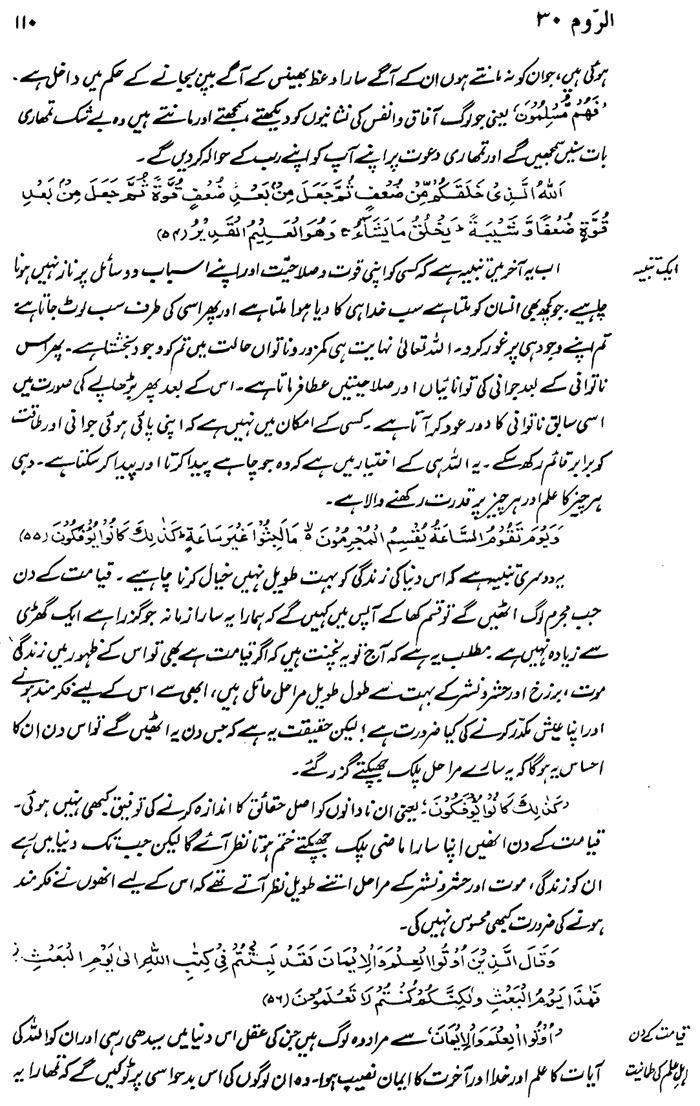 الرّوم ۳۰
۱۱۰
ہوتی ہیں، جو ان کو نہ مانتے ہوں ان کے آگے سارا وعظ بھینس کے آگے بین بجانے کے حکم میں داخل ہے۔
'فَهُمْ مُّسْلِمُوْنَ' یعنی جو لوگ آفاق و انفس کی نشانیوں کو دیکھتے سمجھتے اور مانتے ہیں وہ بے شک تمھاری
بات سنیں سمجھیں گے اور تمھاری دعوت پر اپنے آپ کو اپنے رب کے حوالہ کر دیں گے۔
اَللّٰهُ الَّذِيْ خَلَقَكُمْ مِّنْ ضُعْفٍ ثُمَّ جَعَلَ مِنْۢ بَعْدِ ضُعْفٍ قُوَّةً ثُمَّ جَعَلَ مِنْۢ بَعْدِ
قُوَّةٍ ضُعْفًا وَّشَيْبَةً ؕ يَخْلُقُ مَا يَشَآءُ ۚ وَهُوَ الْعَلِيْمُ الْقَدِيْرُ (۵۴)
ایک تنبیہ
اب یہ آخر میں تنبیہ ہے کہ کسی کو اپنی قوت و صلاحیت اور اپنے اسباب و وسائل پر ناز نہیں ہونا
چاہیے۔ جو کچھ بھی انسان کو ملتا ہے سب خدا ہی کا دیا ہوا ملتا ہے اور پھر اسی کی طرف سب لوٹ جاتا ہے
تم اپنے وجود ہی پر غور کرو۔ اللہ تعالیٰ نہایت ہی کمزور و ناتواں حالت میں تم کو وجود بخشتا ہے۔ پھر اس
ناتوانی کے بعد جوانی کی توانائیاں اور صلاحیتیں عطا فرماتا ہے۔ اس کے بعد پھر بڑھاپے کی صورت میں
اسی سابق ناتوانی کا دور عود کر آتا ہے۔ کسی کے امکان میں نہیں ہے کہ اپنی پائی ہوئی جوانی اور طاقت
کو برابر قائم رکھ سکے۔ یہ اللہ ہی کے اختیار میں ہے کہ وہ جو چاہے پیدا کرتا اور پیدا کر سکتا ہے۔ وہی
ہر چیز کا علم اور ہر چیز پر قدرت رکھنے والا ہے۔
وَيَوْمَ تَقُوْمُ السَّاعَةُ يُقْسِمُ الْمُجْرِمُوْنَ ۙ مَا لَبِثُوْا غَيْرَ سَاعَةٍ ؕ كَذٰلِكَ كَانُوْا يُؤْفَكُوْنَ (۵۵)
یہ دوسری تنبیہ ہے کہ اس دنیا کی زندگی کو بہت طویل نہیں خیال کرنا چاہیے۔ قیامت کے دن
جب مجرم لوگ اٹھیں گے تو قسم کھا کے آپس میں کہیں گے کہ ہمارا یہ سارا زمانہ جو گزرا ہے ایک گھڑی
سے زیادہ نہیں ہے۔ مطلب یہ ہے کہ آج تو یہ نچنت ہیں کہ اگر قیامت ہے بھی تو اس کے ظہور میں زندگی
موت، برزخ اور حشر و نشر کے بہت سے طول طویل مراحل حائل ہیں، ابھی سے اس کے لیے فکر مند ہونے
اور اپنا عیش مکدّر کرنے کی کیا ضرورت ہے؛ لیکن حقیقت یہ ہے کہ جس دن یہ اٹھیں گے تو اس دن ان کا
احساس یہ ہوگا کہ یہ سارے مراحل پلک جھپکتے گزر گئے۔
'كَذٰلِكَ كَانُوْا يُؤْفَكُوْنَ'، یعنی ان نادانوں کو اصل حقائق کا اندازہ کرنے کی توفیق کبھی نہیں ہوئی۔
قیامت کے دن انھیں اپنا سارا ماضی پلک جھپکتے ختم ہوتا نظر آئے گا لیکن جب تک دنیا میں رہے
ان کو زندگی، موت اور حشر و نشر کے مراحل اتنے طویل نظر آتے تھے کہ اس کے لیے انھوں نے فکر مند
ہونے کی ضرورت کبھی محسوس نہیں کی۔
وَقَالَ الَّذِيْنَ اُوْتُوا الْعِلْمَ وَالْاِيْمَانَ لَقَدْ لَبِثْتُمْ فِيْ كِتٰبِ اللّٰهِ اِلٰى يَوْمِ الْبَعْثِ ۫
فَهٰذَا يَوْمُ الْبَعْثِ وَلٰكِنَّكُمْ كُنْتُمْ لَا تَعْلَمُوْنَ (۵۶)
قیامت کے دن
اہلِ علم کی طمانیت
'اُوْتُوا الْعِلْمَ وَالْاِيْمَانَ' سے مراد وہ لوگ ہیں جن کی عقل اس دنیا میں سیدھی رہی اور ان کو اللہ کی
آیات کا علم اور خدا اور آخرت کا ایمان نصیب ہوا۔ وہ ان لوگوں کی اس بدحواسی پر ٹوکیں گے کہ تمھارا یہ